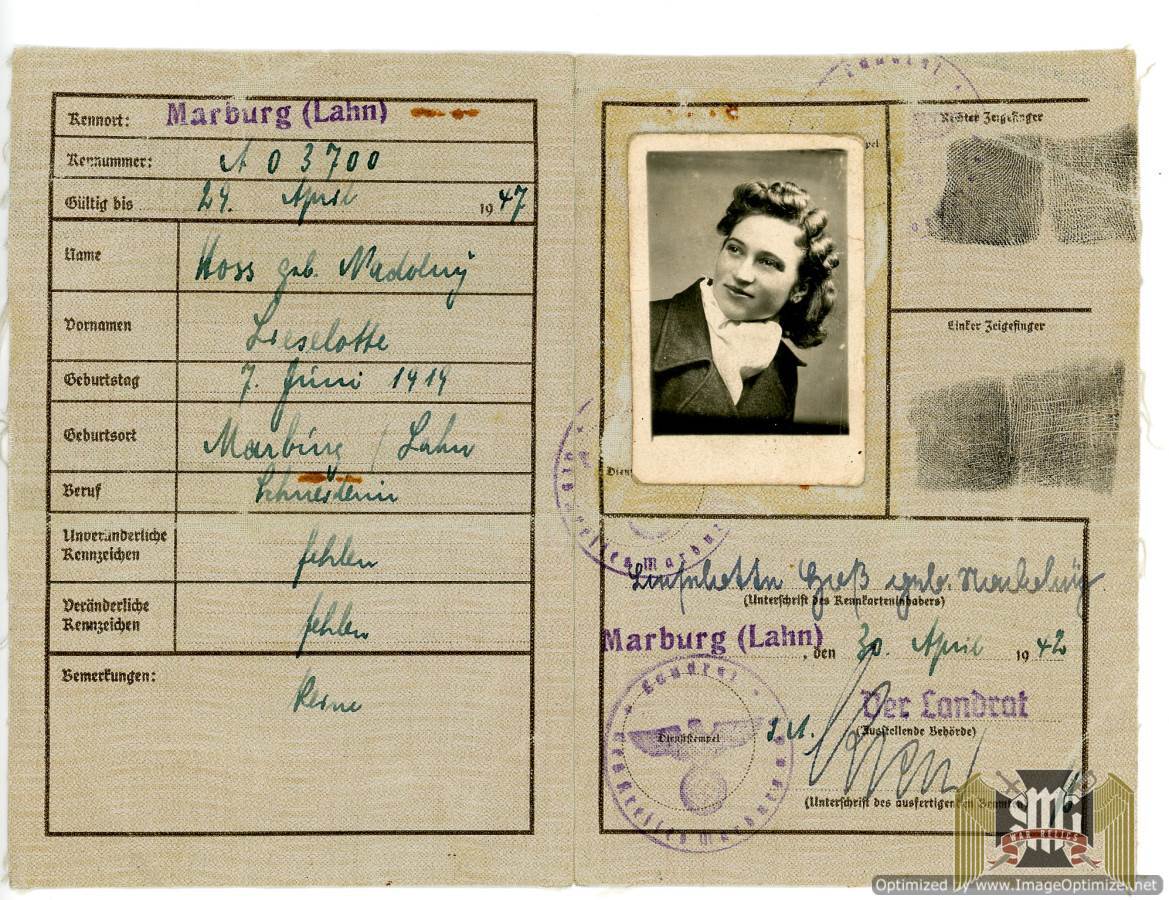 Kennort: Marburg (Lahn)
Kennummer: A 03700
Gültig bis 29. April 1947
Name
geb. Nadolny
Vornamen Lieselotte
Geburtstag 7. Juni 1919
Geburtsort Marburg / Lahn
Beruf Schneiderin
Unveränderliche Kennzeichen fehlen
Veränderliche Kennzeichen fehlen
Bemerkungen: Keine
Landrat
Rechter Zeigefinger
Linker Zeigefinger
geb.
(Unterschrift des Kennkarteninhabers)
Marburg (Lahn), den 30. April 1942
Der Landrat
(Ausstellende Behörde)
Dienststempel
Landrat
Marburg
(Unterschrift des ausfertigenden
SMG
WAR RELICS
Optimized by www.ImageOptimizer.net